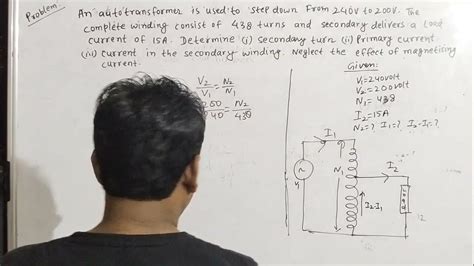 Problem
An autotransformer is used to step down From 240V to 200V. The
complete winding consist of 438 turns and secondary delivers a load
current of 15A. Determine (i) secondary turn (ii) Primary current
(iii) current in the secondary winding. Neglect the effect of magnetising
current.
Given:
V₁=240volt
V₂=200volt
N₁= 438
I₂=15A
N₂=? I₁=? I₂-I₁=?
V₂/V₁ = N₂/N₁
200/240 = N₂/438
I₁
I₂
N₁
I₂-I₁
Load